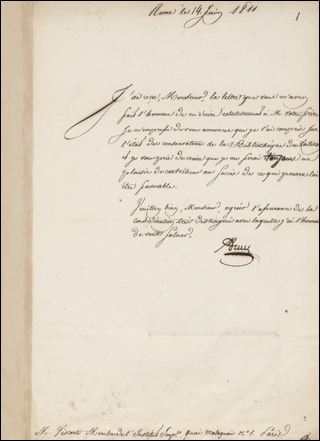 Rome le 14 Juin 1811
1
J'ai reçu, Monsieur, la lettre que vous m'avez
fait l'honneur de m'écrire relativement à M. votre frère.
Je m'empresse de vous annoncer que je l'ai compris sur
l'état des conservateurs de la Bibliothèque du Vatican
et je vous prie de croire que je me ferai toujours un
plaisir de contribuer au succès de ce qui pourra lui
être favorable.
Veuillez bien, Monsieur, agréer l'assurance de la
considération très distinguée avec laquelle j'ai l'honneur
de vous saluer.
M. Visconti Membre de l'Institut Imp. quai Malaquais n° 1. Paris